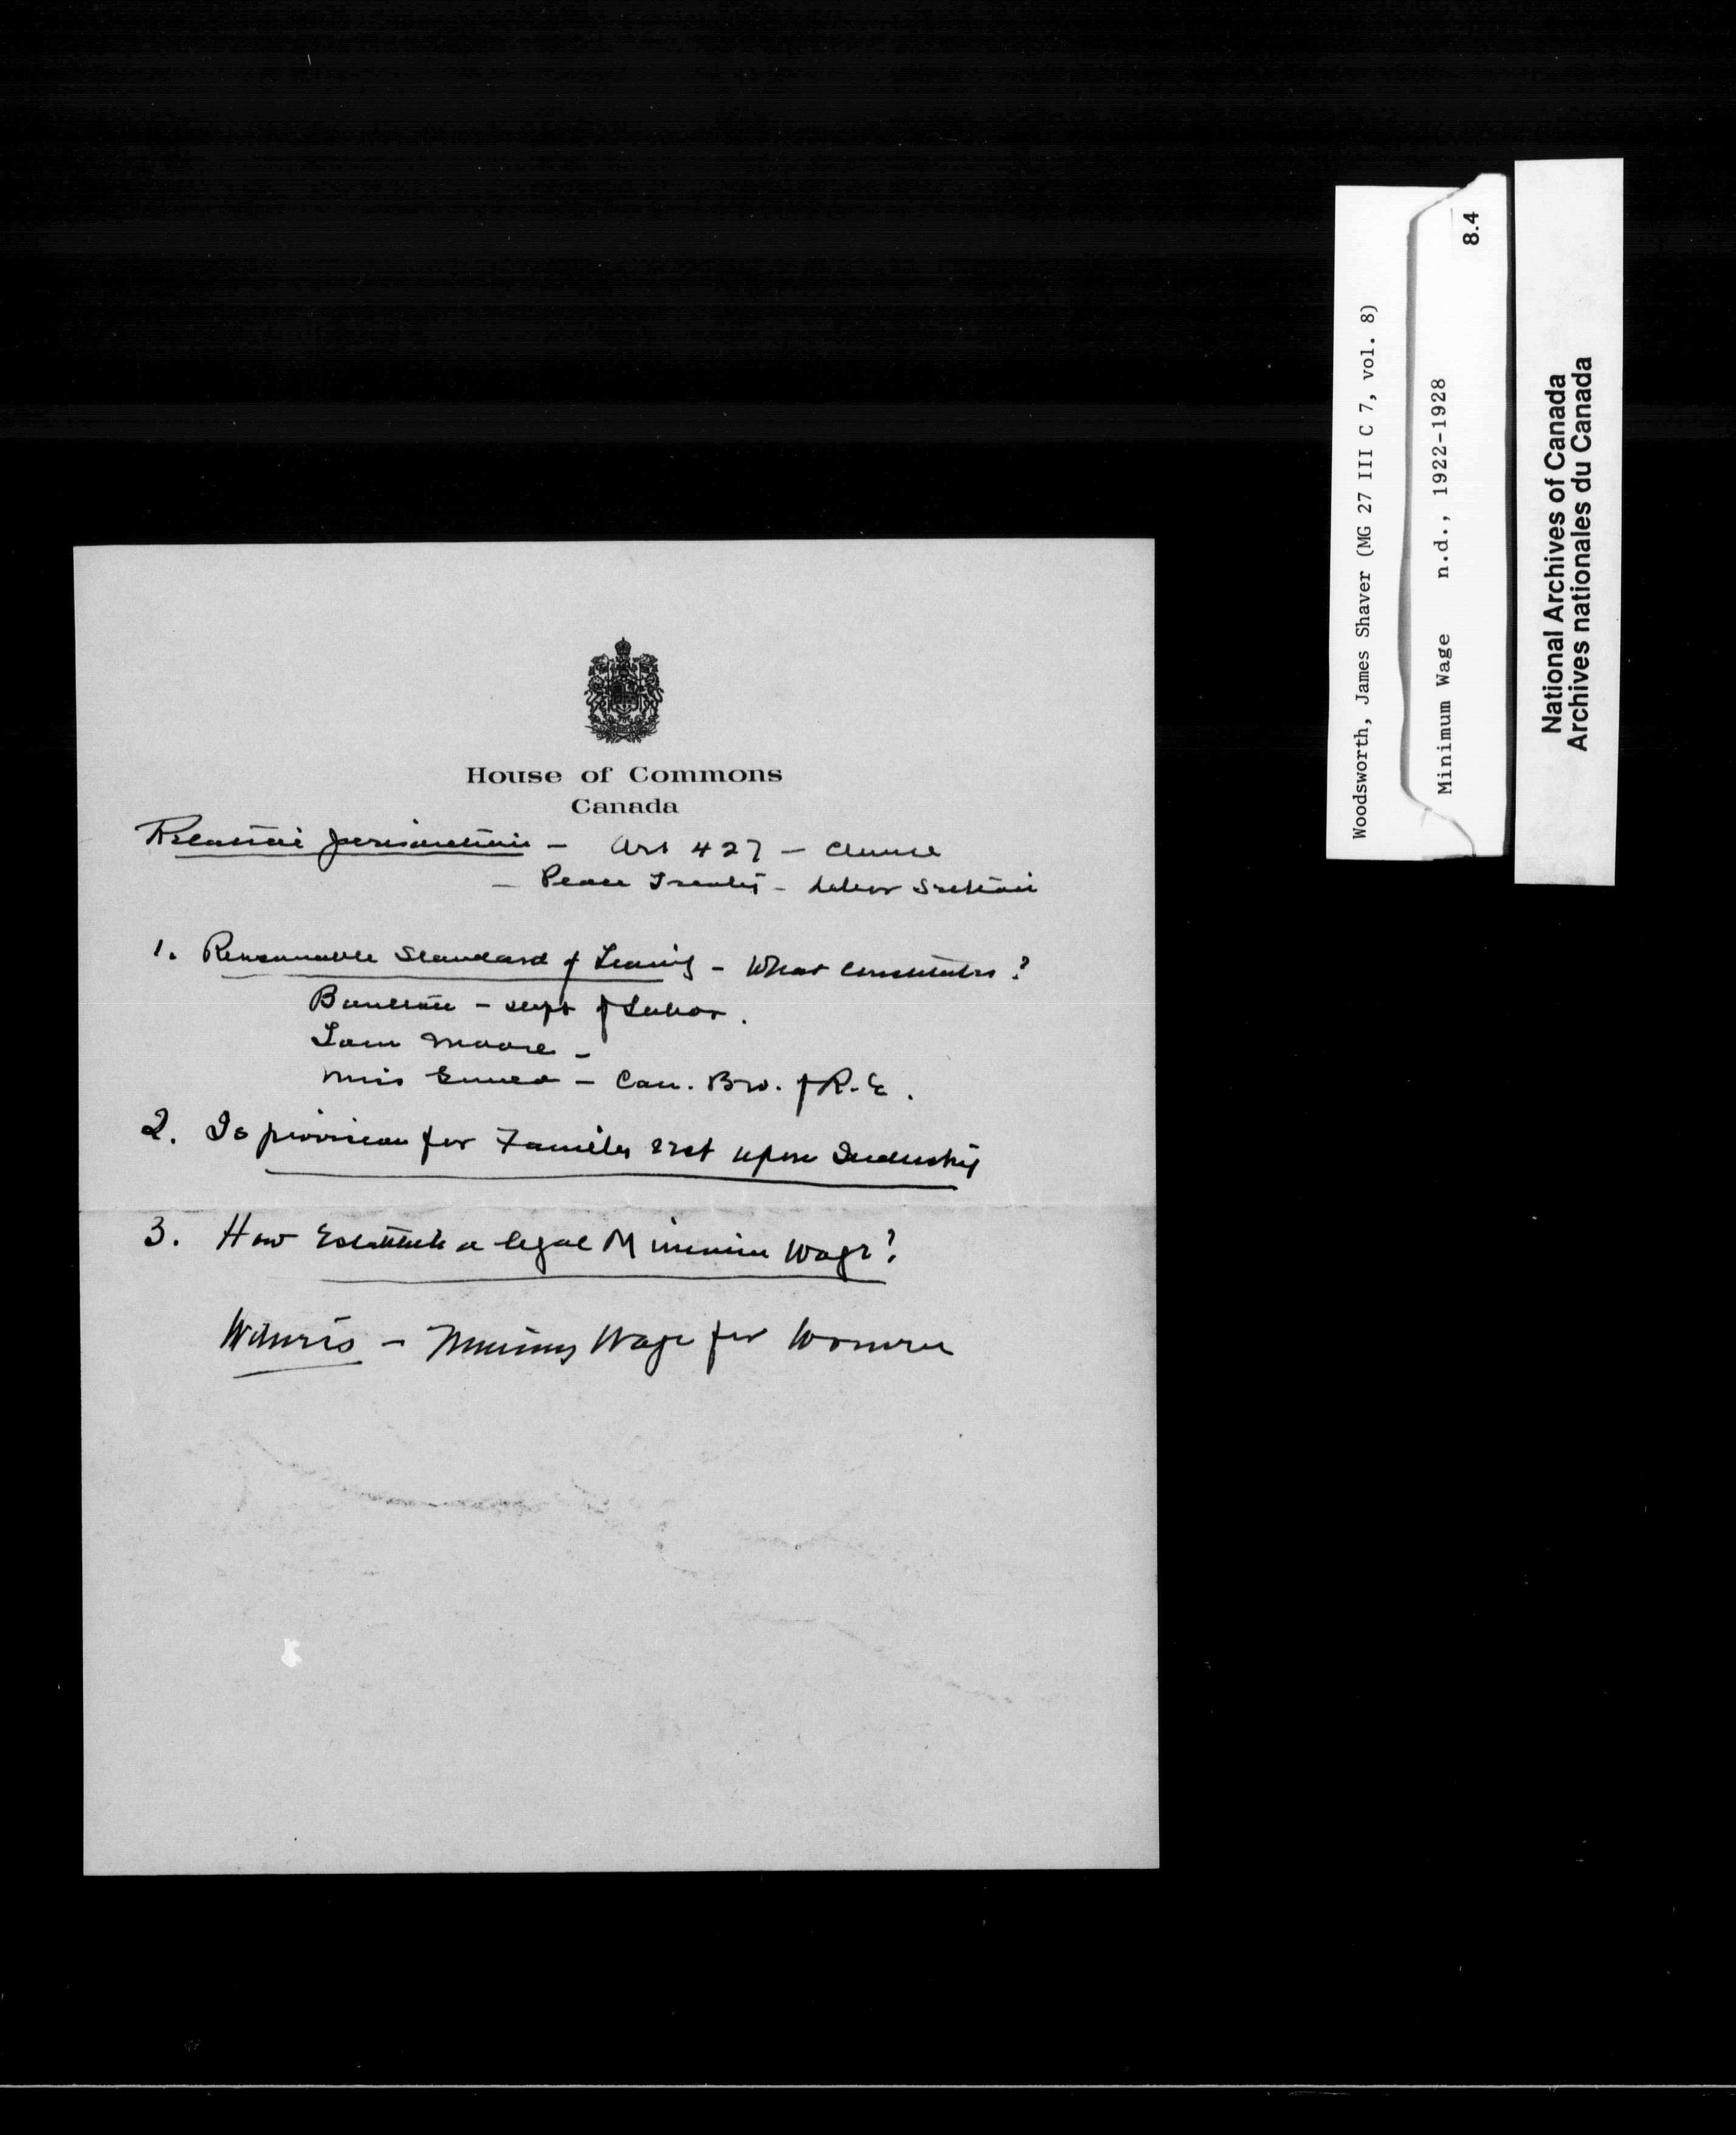 House of Commons
Canada
Relative Jurisdiction - Art 427 - clause
- Peace Treaty - Labor Section
1. Reasonable Standard of Living - What constitutes?
- Dept of Labor.
Tom Moore -
Miss - Can. Bro. of R. E.
2. Is provision for Families rest upon Industry
3. How Establish a legal Minimum Wage?
Witness - Minimum Wage for Women
Woodsworth, James Shaver (MG 27 III C 7, vol. 8)
Minimum Wage n.d., 1922-1928
8.4
National Archives of Canada
Archives nationales du Canada